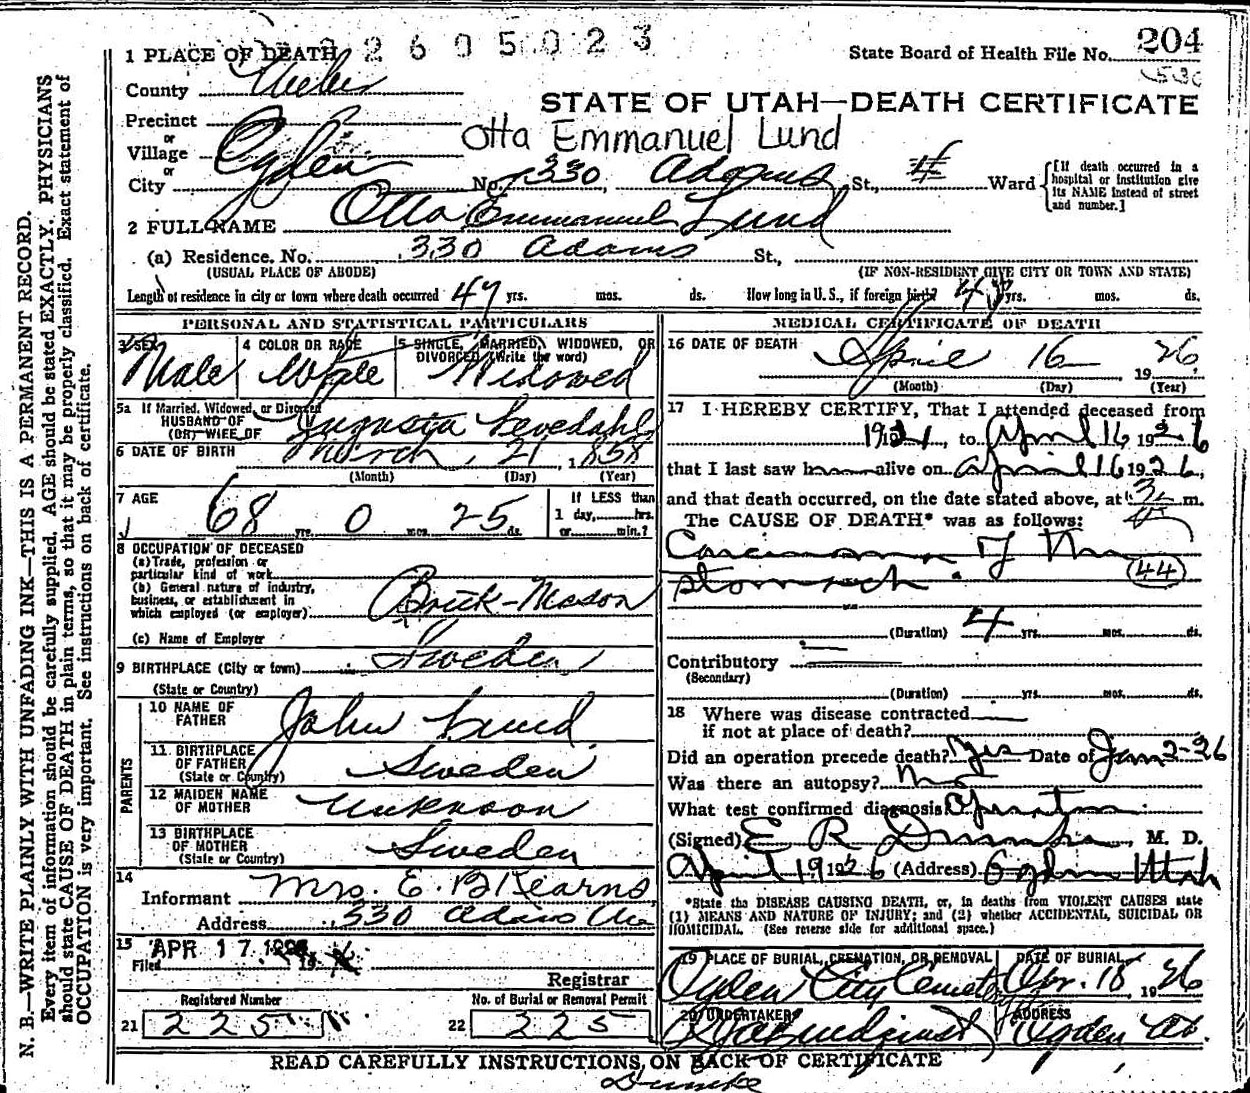 2605023
1 PLACE OF DEATH
State Board of Health File No. 204
County Weber
STATE OF UTAH—DEATH CERTIFICATE
Precinct
or
Village
or
City Ogden No. 330 Adams St., 4 Ward
Otta Emmanuel Lund
[If death occurred in a
hospital or institution give
its NAME instead of street
and number.]
2 FULL NAME Otta Emmanuel Lund
(a) Residence. No. 330 Adams St.,
(USUAL PLACE OF ABODE) (IF NON-RESIDENT GIVE CITY OR TOWN AND STATE)
Length of residence in city or town where death occurred 47 yrs. mos. ds. How long in U. S., if foreign birth? yrs. mos. ds.
PERSONAL AND STATISTICAL PARTICULARS
3 SEX 4 COLOR OR RACE 5 SINGLE, MARRIED, WIDOWED, OR
DIVORCED (Write the word)
Male White Widowed
5a If Married, Widowed, or Divorced
HUSBAND OF
(OR) WIFE OF Augusta
6 DATE OF BIRTH March, 21, 1858
(Month) (Day) (Year)
7 AGE 68 yrs. 0 mos. 25 ds.
If LESS than
1 day, hrs.
or min.?
8 OCCUPATION OF DECEASED
(a) Trade, profession or
particular kind of work
(b) General nature of industry,
business, or establishment in
which employed (or employer) Brick-Mason
(c) Name of Employer
9 BIRTHPLACE (City or town) Sweden
(State or Country)
PARENTS
10 NAME OF
FATHER John Lund
11 BIRTHPLACE
OF FATHER
(State or Country) Sweden
12 MAIDEN NAME
OF MOTHER Unknoon
13 BIRTHPLACE
OF MOTHER
(State or Country) Sweden
14
Informant Mrs. E. B Kearns
Address 330 Adams Ave
15 APR 17 1926
Filed 19
Registrar
Registered Number No. of Burial or Removal Permit
21 225 22 225
MEDICAL CERTIFICATE OF DEATH
16 DATE OF DEATH April 16 1926
(Month) (Day) (Year)
17 I HEREBY CERTIFY, That I attended deceased from
1921, to April 16, 1926
that I last saw h alive on April 16 1926,
and that death occurred, on the date stated above, at m.
The CAUSE OF DEATH* was as follows:
Carcinoma of the
Stomach. 44
(Duration) 4 yrs. mos. ds.
Contributory
(Secondary)
(Duration) yrs. mos. ds.
18 Where was disease contracted
if not at place of death?
Did an operation precede death? yes Date of Jan 2-26
Was there an autopsy? no
What test confirmed diagnosis Operation
(Signed) E R Dumke, M. D.
April 19 1926 (Address) Ogden Utah
*State the DISEASE CAUSING DEATH, or, in deaths from VIOLENT CAUSES state
(1) MEANS AND NATURE OF INJURY; and (2) whether ACCIDENTAL, SUICIDAL OR
HOMICIDAL. (See reverse side for additional space.)
19 PLACE OF BURIAL, CREMATION, OR REMOVAL DATE OF BURIAL
Ogden City Cemetery Apr. 18, 1926
20 UNDERTAKER ADDRESS
Ogden Ut.
READ CAREFULLY INSTRUCTIONS ON BACK OF CERTIFICATE
Dumke
N. B.—WRITE PLAINLY WITH UNFADING INK—THIS IS A PERMANENT RECORD.
Every item of information should be carefully supplied. AGE should be stated EXACTLY. PHYSICIANS
should state CAUSE OF DEATH in plain terms, so that it may be properly classified. Exact statement of
OCCUPATION is very important. See instructions on back of certificate.